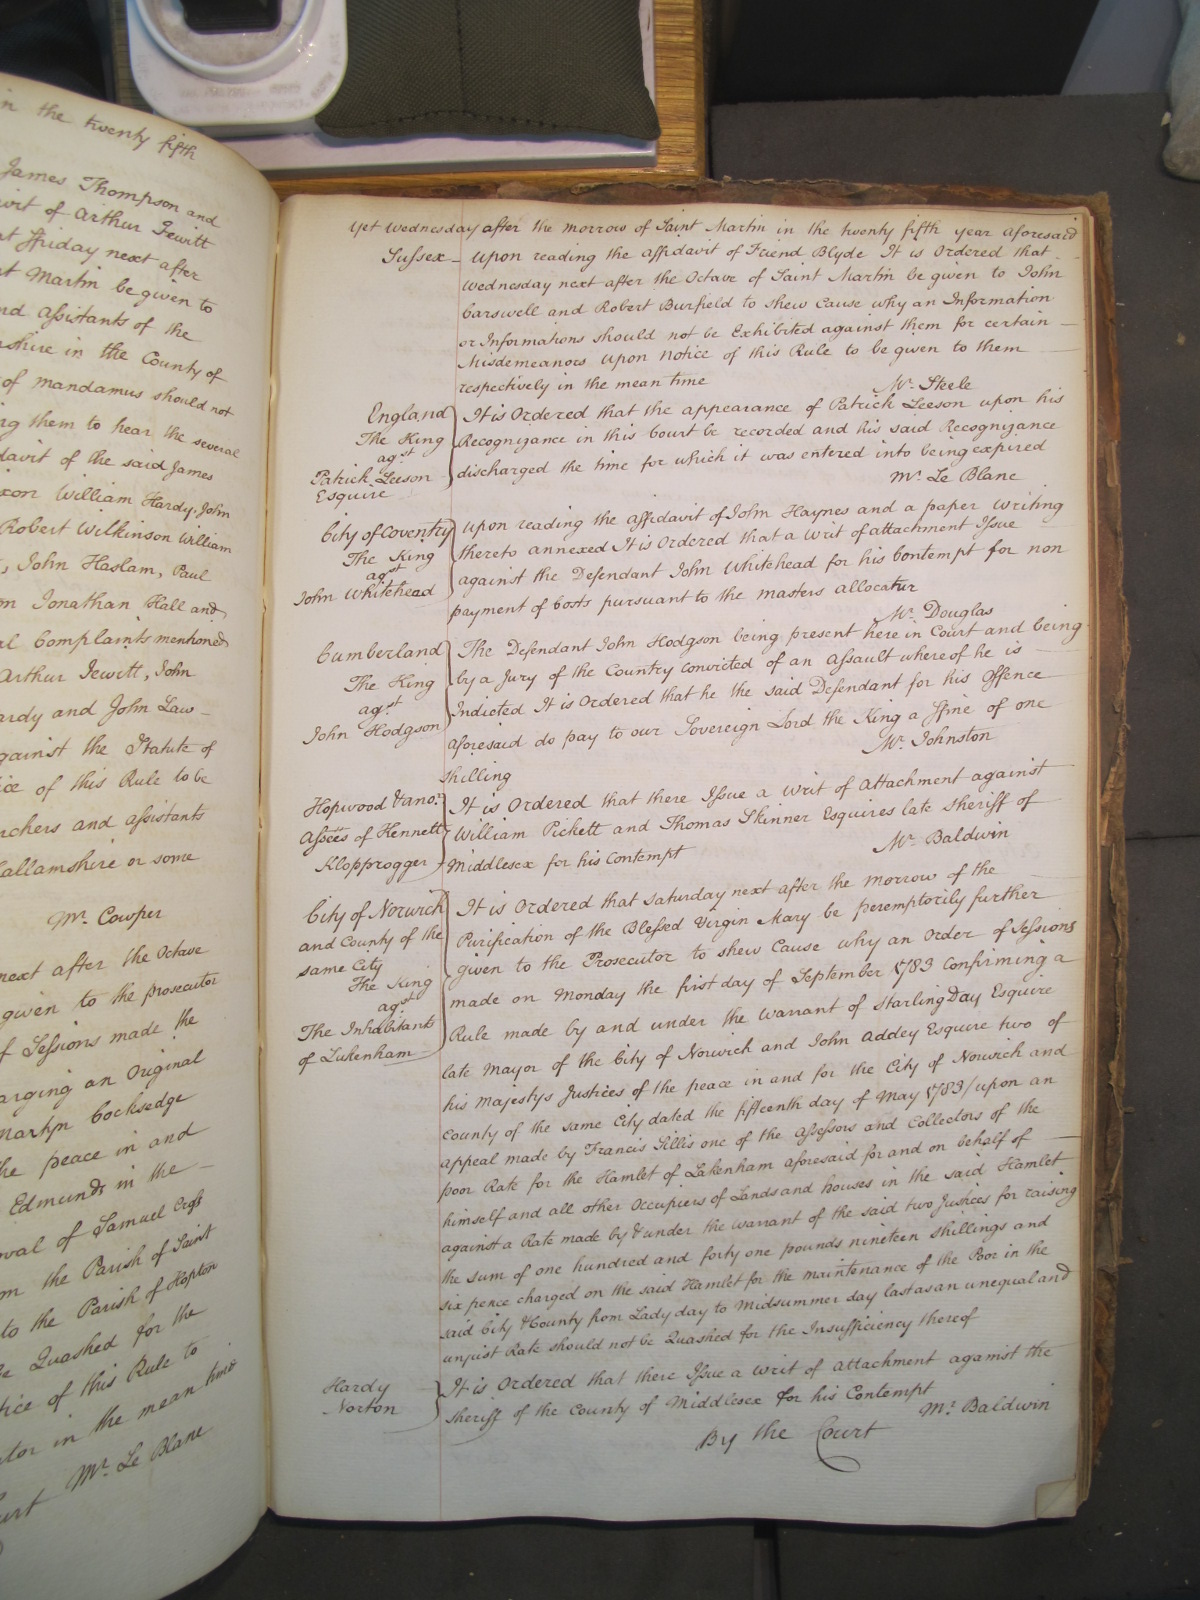 in the twenty fifth
James Thompson and
of Arthur Jewitt
Friday next after
Martin be given to
and assistants of the
shire in the County of
of mandamus should not
ing them to hear the several
davit of the said James
ixon William Hardy John
Robert Wilkinson William
John Haslam, Paul
Jonathan Hall and
Complaints mentioned
Arthur Jewitt, John
ardy and John Law-
gainst the Statute of
ice of this Rule to be
rchers and assistants
allamshire or some
Mr. Cowper
next after the Octave
given to the prosecutor
of Sessions made the
arging an Original
Martyn Cocksedge
he peace in and
Edmunds in the
oval of Samuel Cross
om the Parish of Saint
to the Parish of Hopton
be Quashed for the
tice of this Rule to
utor in the mean time
Mr. Le Blanc
urt
Yet Wednesday after the morrow of Saint Martin in the twenty fifth year aforesaid
Sussex - Upon reading the affidavit of Friend Blyde It is Ordered that
Wednesday next after the Octave of Saint Martin be given to John
Carswell and Robert Burfield to shew Cause why an Information
or Informations should not be Exhibited against them for certain
Misdemeanors upon Notice of this Rule to be given to them
respectively in the mean time
Mr. Steele
England
The King
agst
Patrick Leeson
Esquire
It is Ordered that the appearance of Patrick Leeson upon his
Recognizance in this Court be recorded and his said Recognizance
discharged the time for which it was entered into being expired
Mr. Le Blanc
City of Coventry
The King
agst
John Whitehead
Upon reading the affidavit of John Haynes and a paper Writing
thereto annexed It is Ordered that a Writ of attachment Issue
against the Defendant John Whitehead for his Contempt for non
payment of Costs pursuant to the masters allocatur
Mr. Douglas
Cumberland
The King
agst
John Hodgson
The Defendant John Hodgson being present here in Court and being
by a Jury of the Country convicted of an Assault whereof he is
Indicted It is Ordered that he the said Defendant for his Offence
aforesaid do pay to our Sovereign Lord the King a Fine of one
shilling
Mr. Johnston
Hopwood & ano.
Assees of Hennett
Klopprogger
It is Ordered that there Issue a Writ of Attachment against
William Pickett and Thomas Skinner Esquires late Sheriff of
Middlesex for his Contempt
Mr. Baldwin
City of Norwich
and County of the
same City
The King
agst
The Inhabitants
of Lakenham
It is Ordered that Saturday next after the Morrow of the
Purification of the Blessed Virgin Mary be peremptorily further
given to the Prosecutor to shew Cause why an Order of Sessions
made on Monday the first day of September 1783 Confirming a
Rule made by and under the Warrant of Starling Day Esquire
late Mayor of the City of Norwich and John Addey Esquire two of
his Majestys Justices of the peace in and for the City of Norwich and
County of the same City dated the fifteenth day of May 1783/ upon an
appeal made by Francis Sillis one of the Assessors and Collectors of the
poor Rate for the Hamlet of Lakenham aforesaid for and on behalf of
himself and all other Occupiers of Lands and houses in the said Hamlet
against a Rate made by & under the Warrant of the said two Justices for raising
the sum of one hundred and forty one pounds nineteen shillings and
six pence charged on the said Hamlet for the maintenance of the Poor in the
said City & County from Lady day to Midsummer day last as an unequal and
unjust Rate should not be Quashed for the Insufficiency thereof
Hardy
Norton
It is Ordered that there Issue a Writ of attachment against the
Sheriff of the County of Middlesex for his Contempt
Mr. Baldwin
By the Court